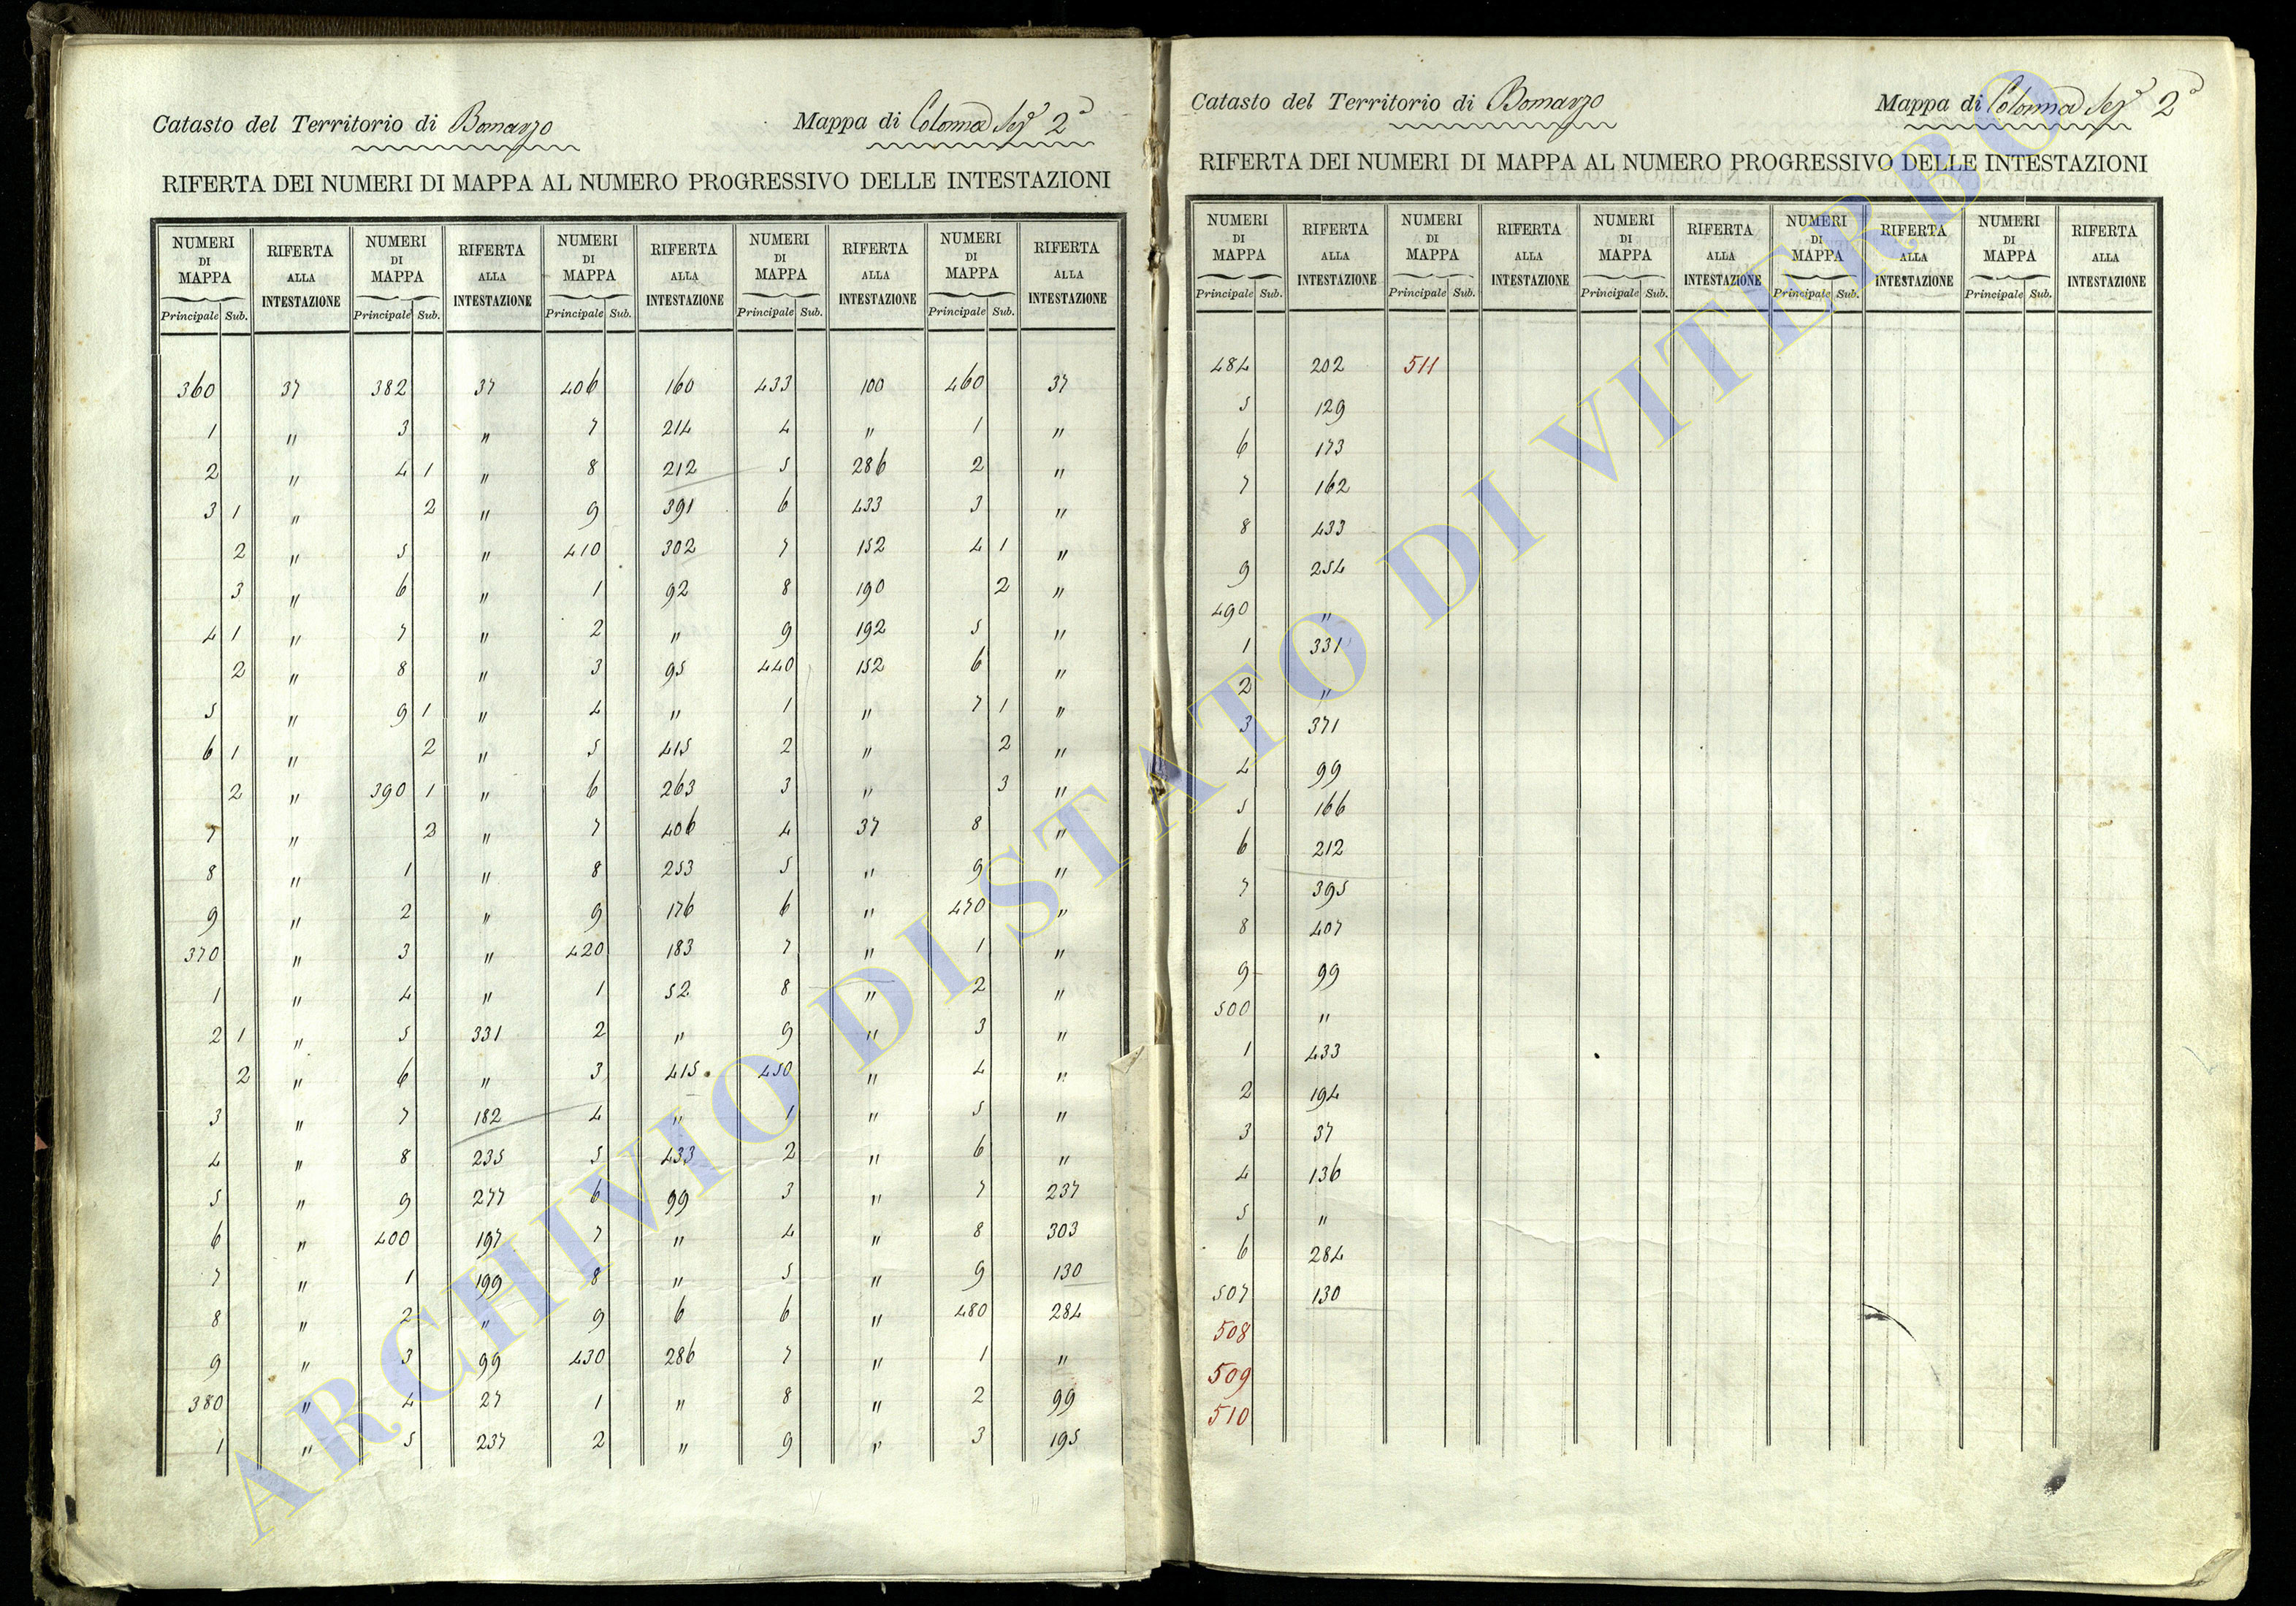 Catasto del Territorio di Bomarzo Mappa di Colonna Sezᵉ 2ᵃ
RIFERTA DEI NUMERI DI MAPPA AL NUMERO PROGRESSIVO DELLE INTESTAZIONI
NUMERI DI MAPPA RIFERTA ALLA INTESTAZIONE NUMERI DI MAPPA RIFERTA ALLA INTESTAZIONE NUMERI DI MAPPA RIFERTA ALLA INTESTAZIONE NUMERI DI MAPPA RIFERTA ALLA INTESTAZIONE NUMERI DI MAPPA RIFERTA ALLA INTESTAZIONE
Principale Sub. Principale Sub. Principale Sub. Principale Sub. Principale Sub.
360 37 382 37 406 160 433 100 460 37
1 " 3 " 7 214 4 " 1 "
2 " 4 1 " 8 212 5 286 2 "
3 1 " 2 " 9 391 6 433 3 "
2 " 5 " 410 302 7 152 4 1 "
3 " 6 " 1 92 8 190 2 "
4 1 " 7 " 2 " 9 192 5 "
2 " 8 " 3 95 440 152 6 "
5 " 9 1 " 4 " 1 " 7 1 "
6 1 " 2 " 5 415 2 " 2 "
2 " 390 1 " 6 263 3 " 3 "
7 " 2 " 7 406 4 37 8 "
8 " 1 " 8 253 5 " 9 "
9 " 2 " 9 176 6 " 470 "
370 " 3 " 420 183 7 " 1 "
1 " 4 " 1 52 8 " 2 "
2 1 " 5 331 2 " 9 " 3 "
2 " 6 " 3 415 450 " 4 "
3 " 7 182 4 " 1 " 5 "
4 " 8 235 5 433 2 " 6 "
5 " 9 277 6 99 3 " 7 237
6 " 400 197 7 " 4 " 8 303
7 " 1 199 8 " 5 " 9 130
8 " 2 " 9 6 6 " 480 284
9 " 3 99 430 286 7 " 1 "
380 " 4 27 1 " 8 " 2 99
1 " 5 237 2 " 9 " 3 195
Catasto del Territorio di Bomarzo Mappa di Colonna Sezᵉ 2ᵃ
RIFERTA DEI NUMERI DI MAPPA AL NUMERO PROGRESSIVO DELLE INTESTAZIONI
NUMERI DI MAPPA RIFERTA ALLA INTESTAZIONE NUMERI DI MAPPA RIFERTA ALLA INTESTAZIONE NUMERI DI MAPPA RIFERTA ALLA INTESTAZIONE NUMERI DI MAPPA RIFERTA ALLA INTESTAZIONE NUMERI DI MAPPA RIFERTA ALLA INTESTAZIONE
Principale Sub. Principale Sub. Principale Sub. Principale Sub. Principale Sub.
484 202 511
5 129
6 173
7 162
8 433
9 254
490 "
1 331
2 "
3 371
4 99
5 166
6 212
7 395
8 407
9 99
500 "
1 433
2 194
3 37
4 136
5 "
6 284
507 130
508
509
510
ARCHIVIO DI STATO DI VITERBO